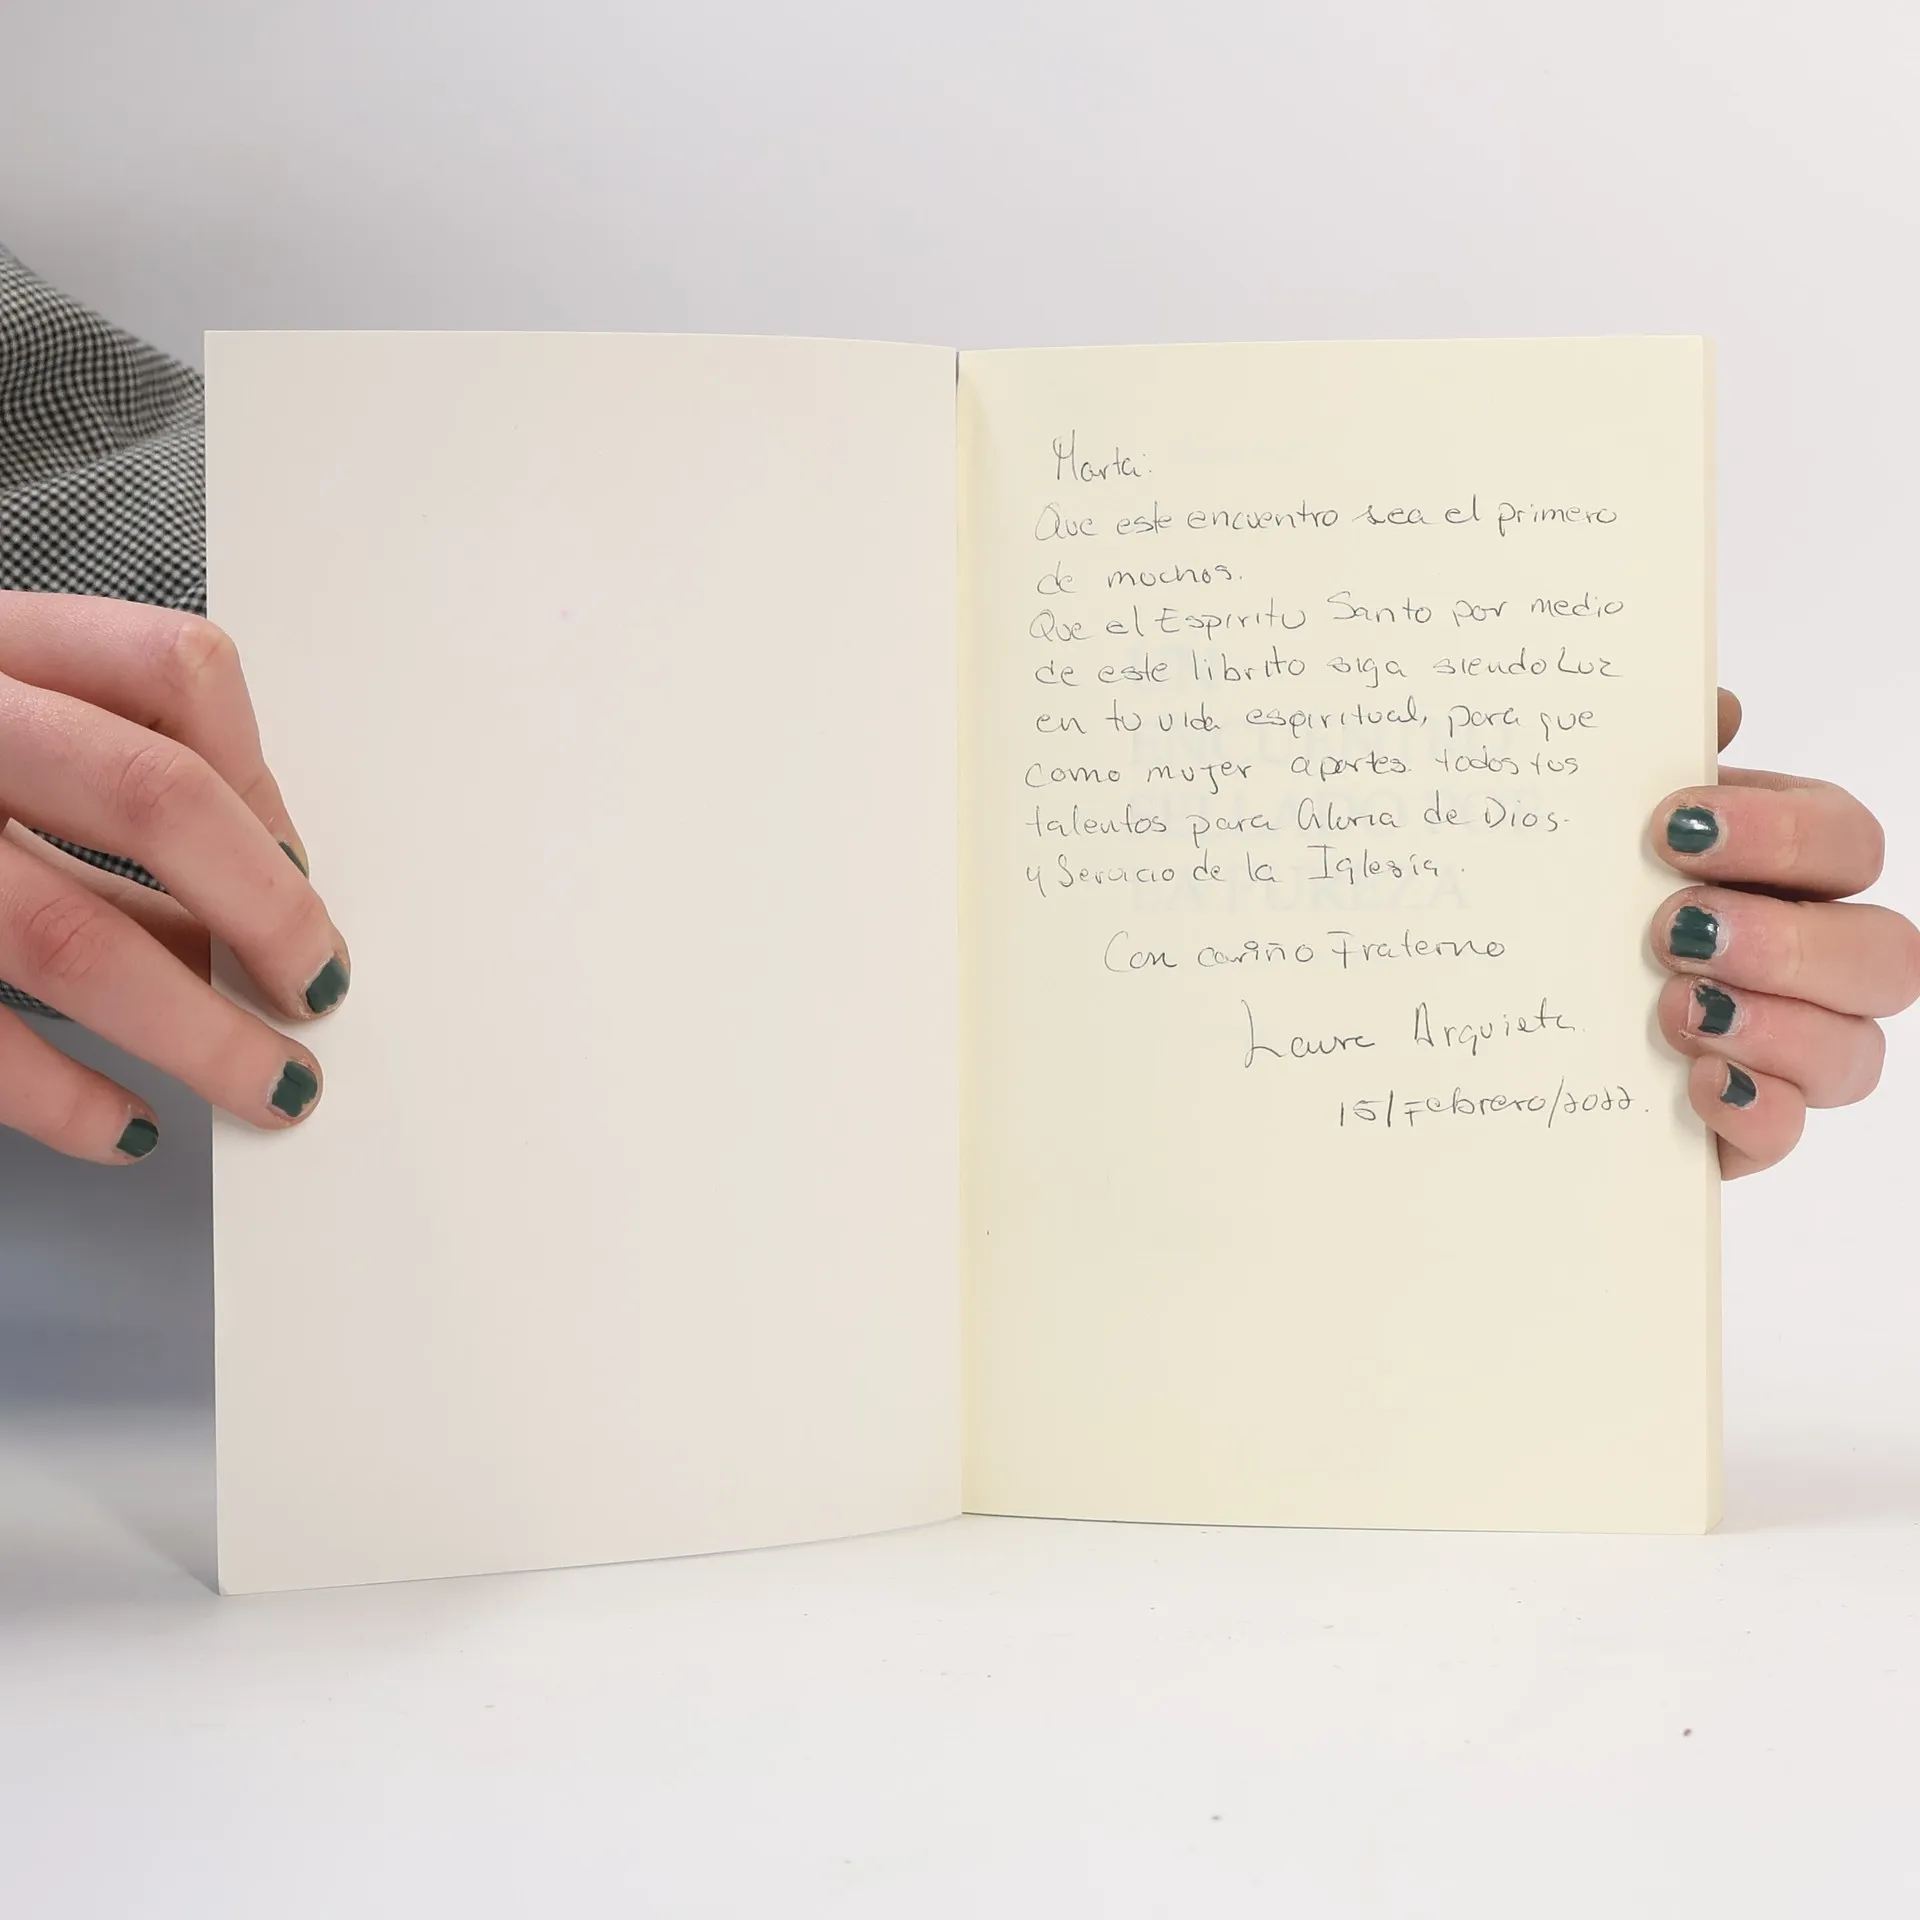 Marta:
Que este encuentro sea el primero
de muchos.
Que el Espiritu Santo por medio
de este librito siga siendo Luz
en tu vida espiritual, para que
como mujer aportes todos tus
talentos para Gloria de Dios
y Servicio de la Iglesia.
Con cariño Fraterno
Laura Arquieta
15/Febrero/2022.